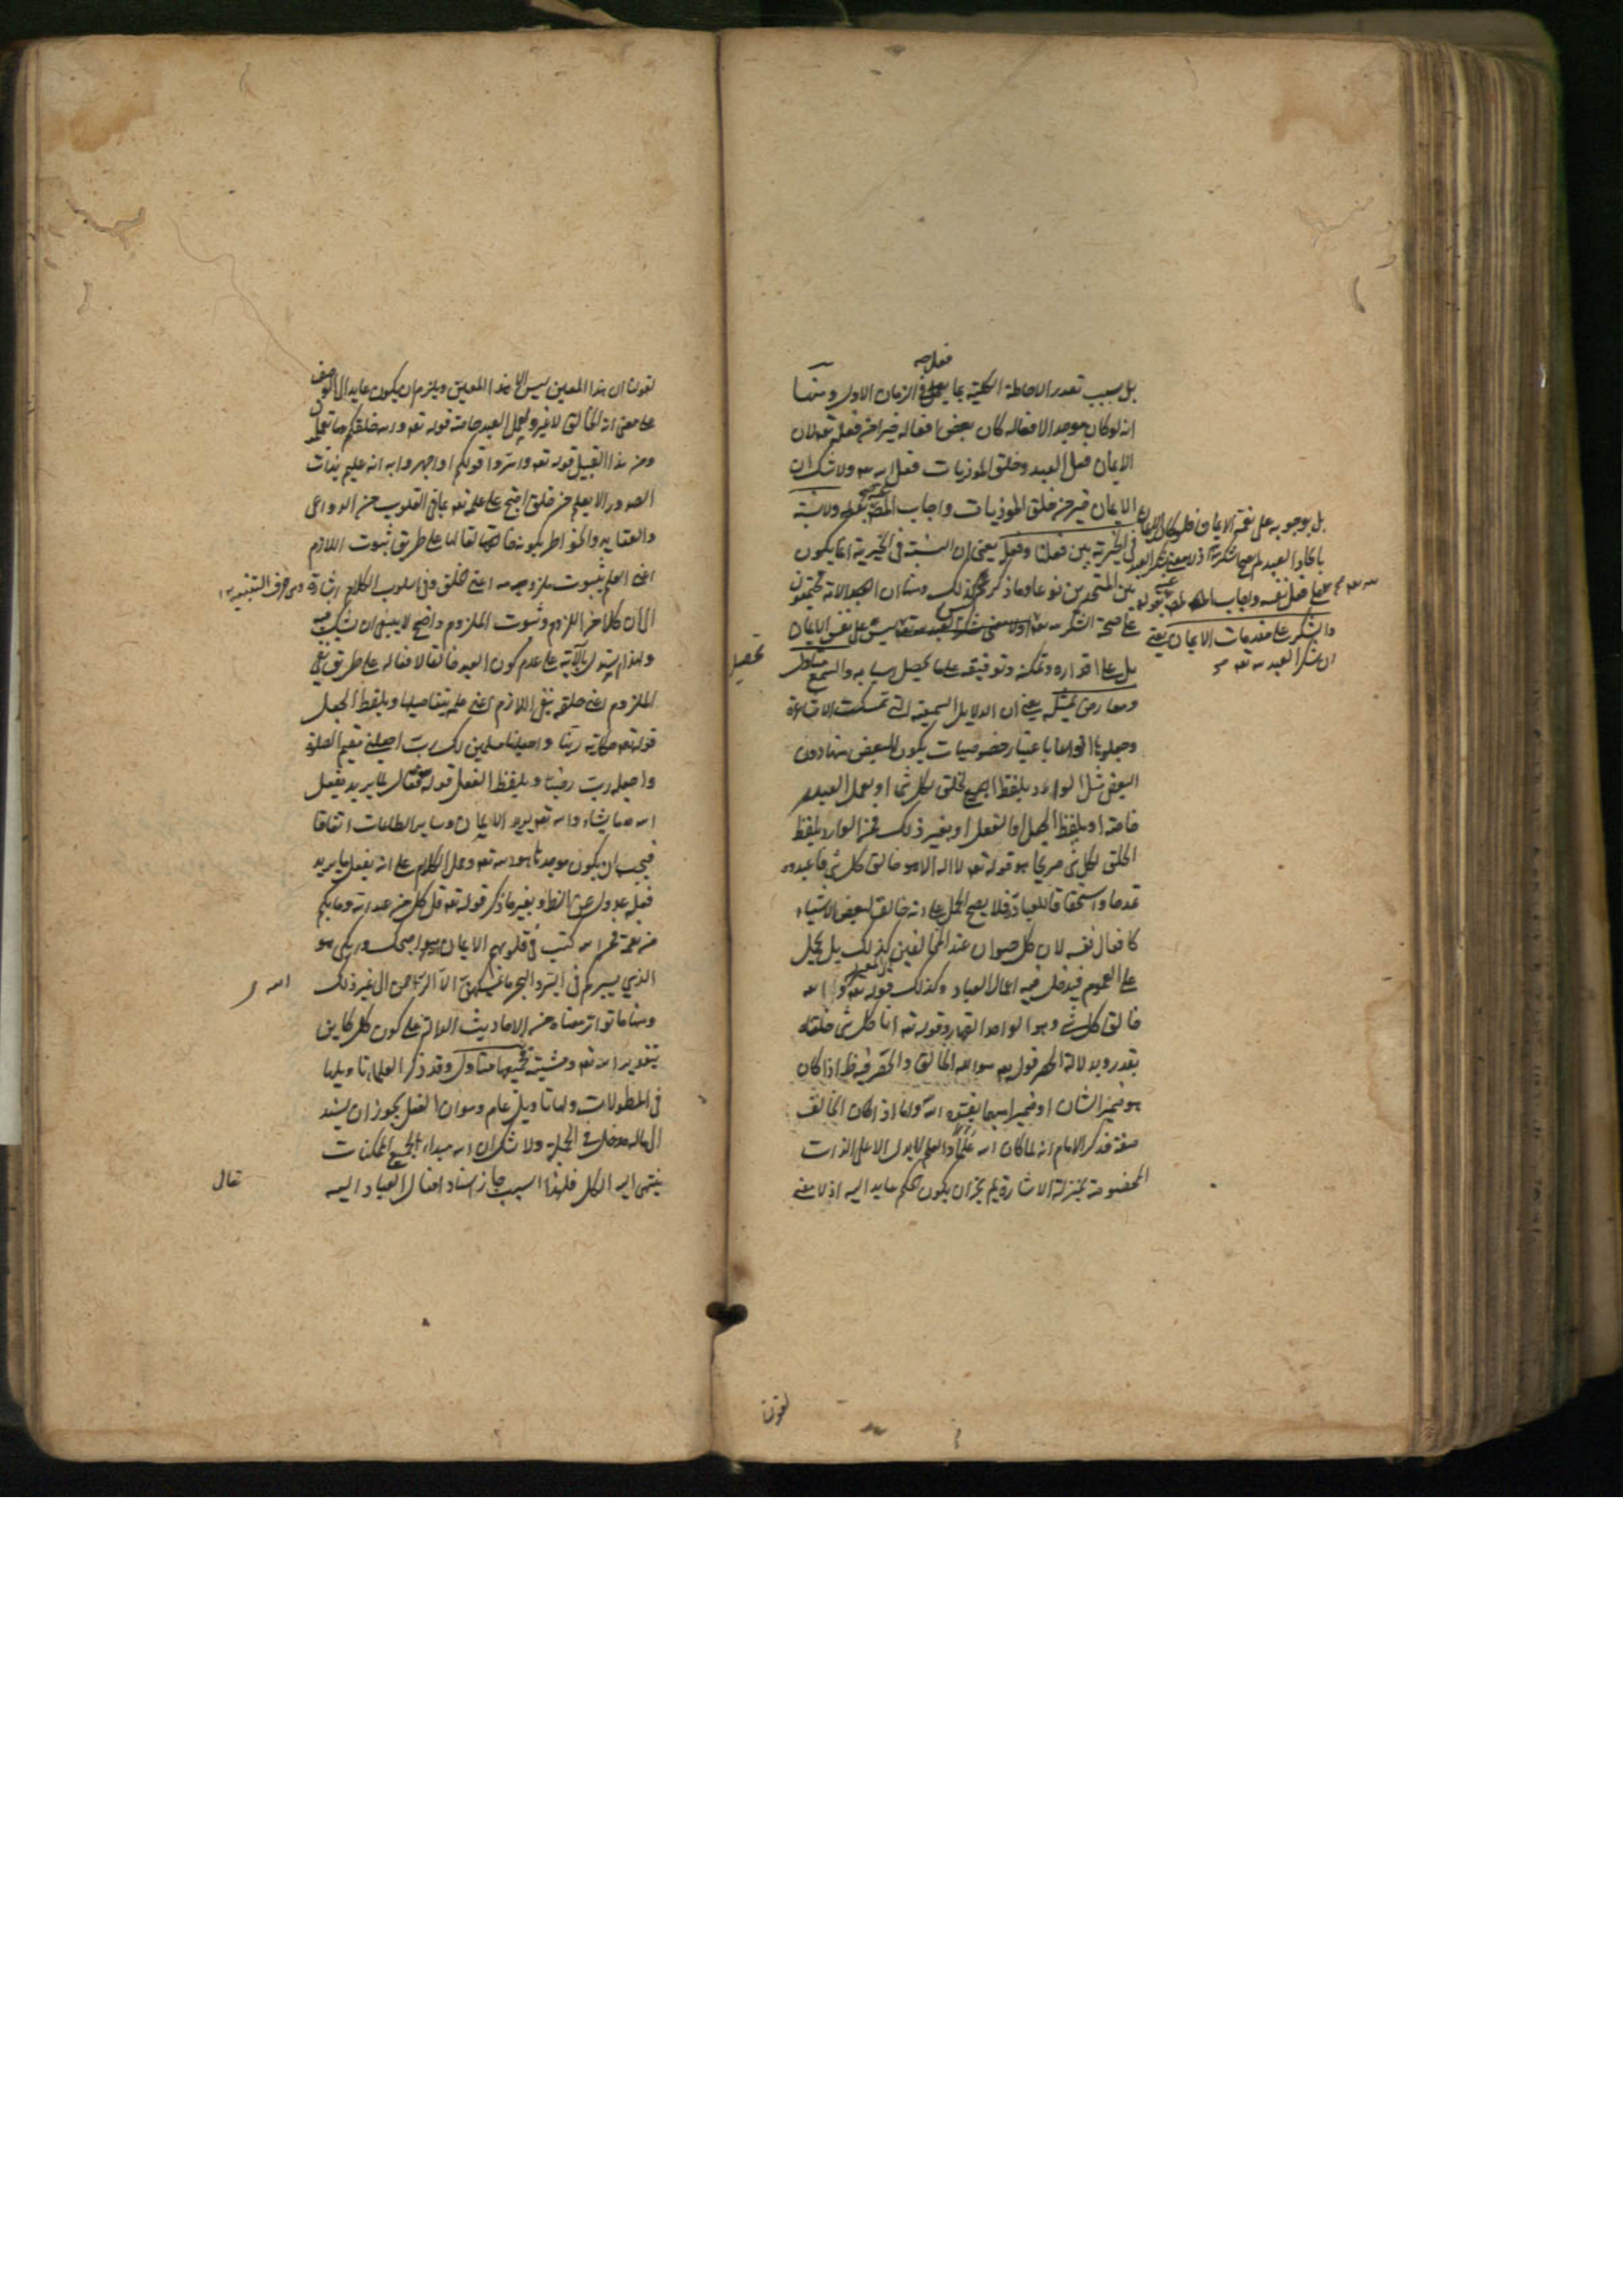 بل بسبب تعذر الاحاطة الكلية بما يفعله فى الزمان الاول ومنها
انه لو كان موجدا لافعاله كان بعض افعاله خيرا من فعله تعه لان
الايمان فعل العبد وخلق الموذيات فعل الله تعه ولا شك ان
الايمان خير من خلق الموذيات واجاب المص بقوله ولا نسبة
فى الخيرية بين فعلنا وفعله يعنى ان النسبة فى الخيرية انما يكون
بين المتحدين نوعا وما ذكر ليس كذلك ومنها ان الامة مجتمعون
على صحة الشكر لله تعه
بل على اقداره وتمكنه وتوفيقه على تحصيل اسبابه والسمع متاول
ومعارض بمثله يعنى ان الدلايل السمعية التى تمسكت الاشاعرة
وجعلوها انواعا باعتبار خصوصيات يكون للبعض منها دون
البعض مثل الوارد بلفظ الخلق لكل شئ او لعمل العبد
خاصة او بلفظ الجعل او الفعل او بغير ذلك فمن الوارد بلفظ
الخلق لكل شئ صريحا هو قوله تعه لا اله الا هو خالق كل شئ فاعبدوه
تمدحا واستحقاقا للعبادة فلا يصح الحمل على انه خالق لبعض الاشياء
كافعال نفسه لان كل حيوان عند المخالفين كذلك بل يحمل
على العموم فيدخل فيه اعمال العباد وكذلك قوله تعه قل الله
خالق كل شئ وهو الواحد القهار وقوله تعه انا كل شئ خلقناه
بقدر وبدلالة الحصر قوله تعه هو الله الخالق والحصر فيه ظ اذا كان
هو ضمير الشان او ضميرا مبهما يفسره الله واما اذا كان الخالق
صفة فذكر الامام انه لما كان الله علما والعلم لا يدل الا على الذات
المخصوصة بمنزلة الاشارة لم يجز ان يكون الحكم عايدا اليه اذ لا معنى
بل بوجوبه على نعمة الايمان فلو كان الايمان
بايجاد العبد لم يصح الشكر عليه
والشكر على مقدمات الايمان يعنى
ان شكر العبد لله تعه
تحصيل
لقولنا
لقولنا ان هذا المعين ليس الا هذا المعين ويلزم ان يكون عايدا الى الوصف
على معنى انه الخالق لا غيره ولعمل العبد خاصة قوله تعه والله خلقكم وما تعملون
ومن هذا القبيل قوله تعه واسروا قولكم او اجهروا به انه عليم بذات
الصدور الا يعلم من خلق احتج على علمه تعه بما فى القلوب من الدواعى
والعقايد والخواطر بكونه خالقا لها على طريق ثبوت اللازم
اعنى العلم بثبوت ملزومه اعنى الخلق وفى اسلوب الكلام اشارة
الى ان كلا من اللزوم وثبوت الملزوم واضح لا ينبغى ان يشك فيه
ولهذا يستدل بالآية على عدم كون العبد خالقا لافعاله على طريق نفى
الملزوم اعنى خلقه بنفى اللازم اعنى علمه بتفاصيلها وبلفظ الجعل
قوله تعه حكاية ربنا واجعلنا مسلمين لك رب اجعلنى مقيم الصلوة
واجعله رب رضيا وبلفظ الفعل قوله تعه فعال لما يريد يفعل
الله ما يشاء والله تعه يريد الايمان وساير الطاعات اتفاقا
فيجب ان يكون موجدها هو الله تعه وحمل الكلام على انه يفعل ما يريد
فعله عدول عن الظ وبغير ما ذكر قوله تعه قل كل من عند الله وما بكم
من نعمة فمن الله كتب فى قلوبهم الايمان وانه هو اضحك وابكى هو
الذى يسيركم فى البر والبحر ما يمسكهن الا الرحمن الى غير ذلك
ومنها ما تواتر معناه من الاحاديث الدالة على كون كل كاين
بتقدير الله تعه ومشيته فجميعها متاول وقد ذكر العلماء تاويلها
فى المطولات ولها تاويل عام وهو ان الفعل يجوز ان يسند
الى ما له مدخل فى الجملة ولا شك ان الله مبداء لجميع الممكنات
ينتهى اليه الكل فلهذا السبب جاز اسناد افعال العباد اليه
الله
تعال